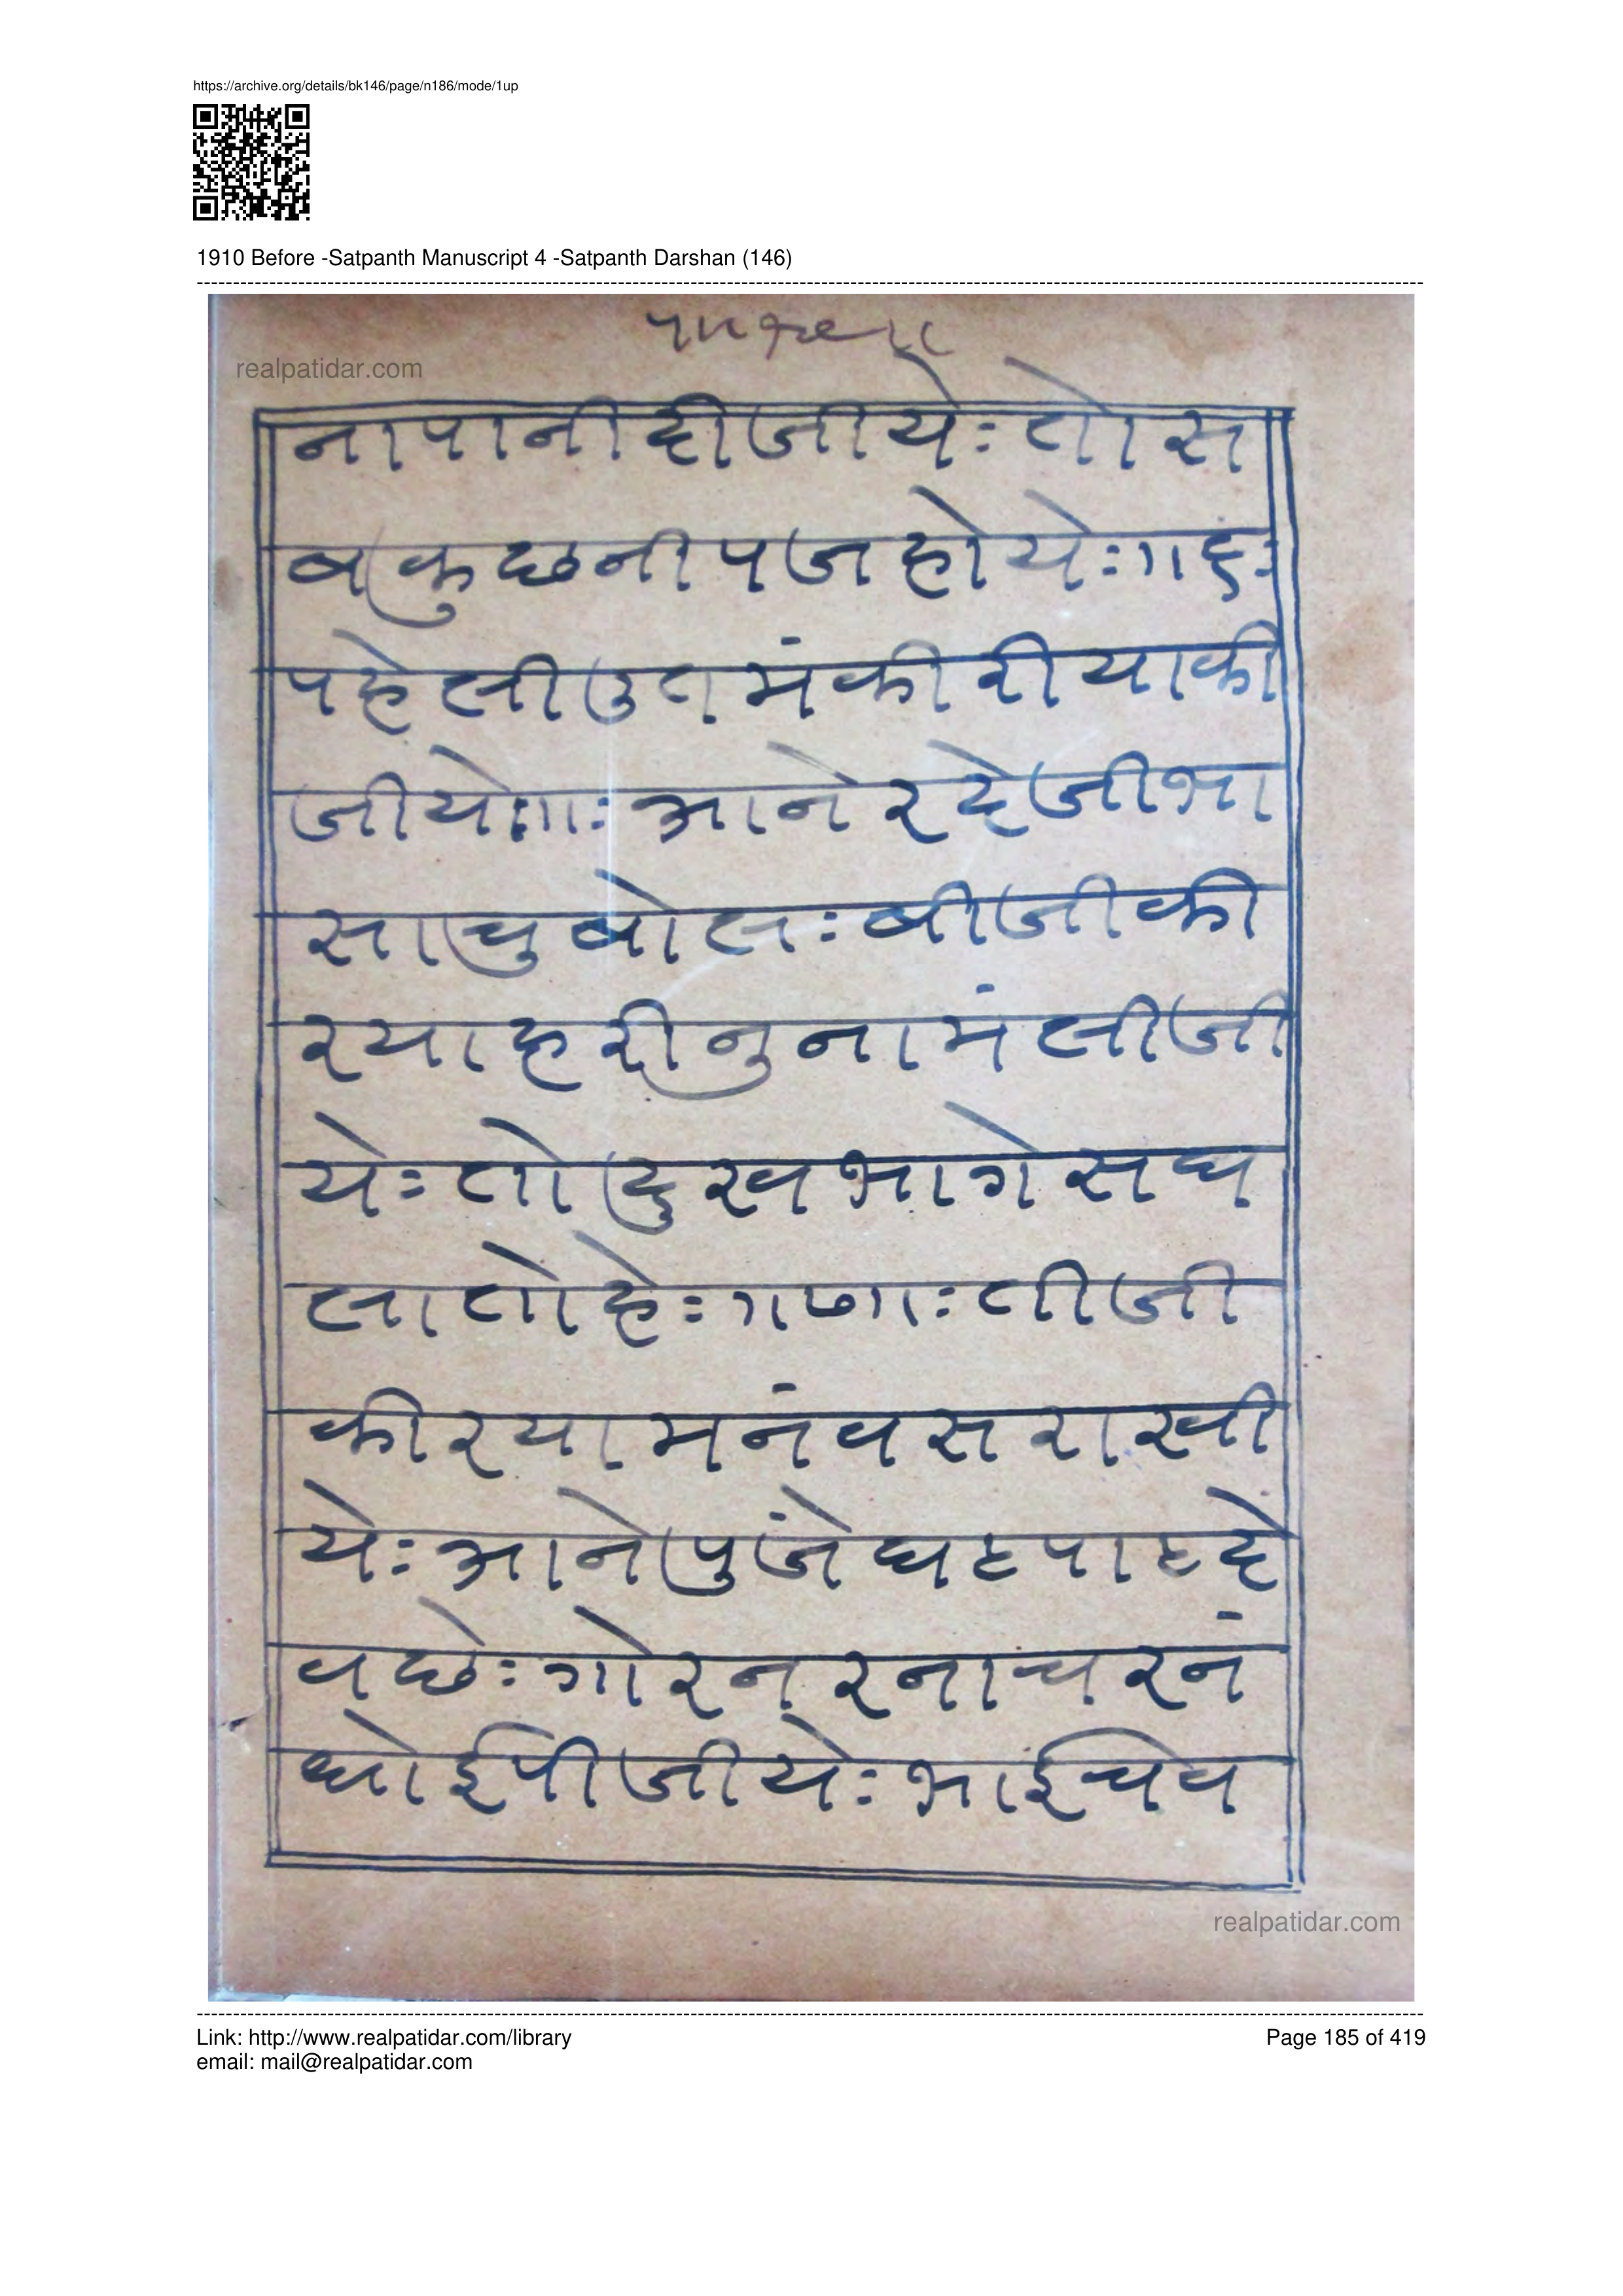 https://archive.org/details/bk146/page/n186/mode/1up
1910 Before -Satpanth Manuscript 4 -Satpanth Darshan (146)
realpatidar.com
नापानीदीजीयेः तोस
बकुछनीपजहोयेः
पहेलीउतमंकीरीयाकी
जीये आनेरदेजीभा
साचुबोलः बीजीकी
रयाहरीनुनामंलीजी
येः तोदुखभागेसघ
लातोहेः तीजी
कीरयामनंवसराखी
येः आनेपुजेघटपाटदे
वछेः गोरनरनाचरनं
धोईपीजीयेः भाईचेव
realpatidar.com
Link: http://www.realpatidar.com/library
Page 185 of 419
email: mail@realpatidar.com